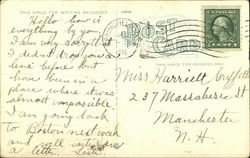 THIS SPACE FOR WRITING MESSAGES
POST CARD
THIS SPACE FOR ADDRESS ONLY
Hello-how is
everything by you.
I am very sorry I
didn't drop you a
line before but
have been in a
place where it was
almost impossible.
I am going back
to Boston next week
and will write
a letter
Miss Harriett Griffith
237 Massabesic St
Manchester
N.H.